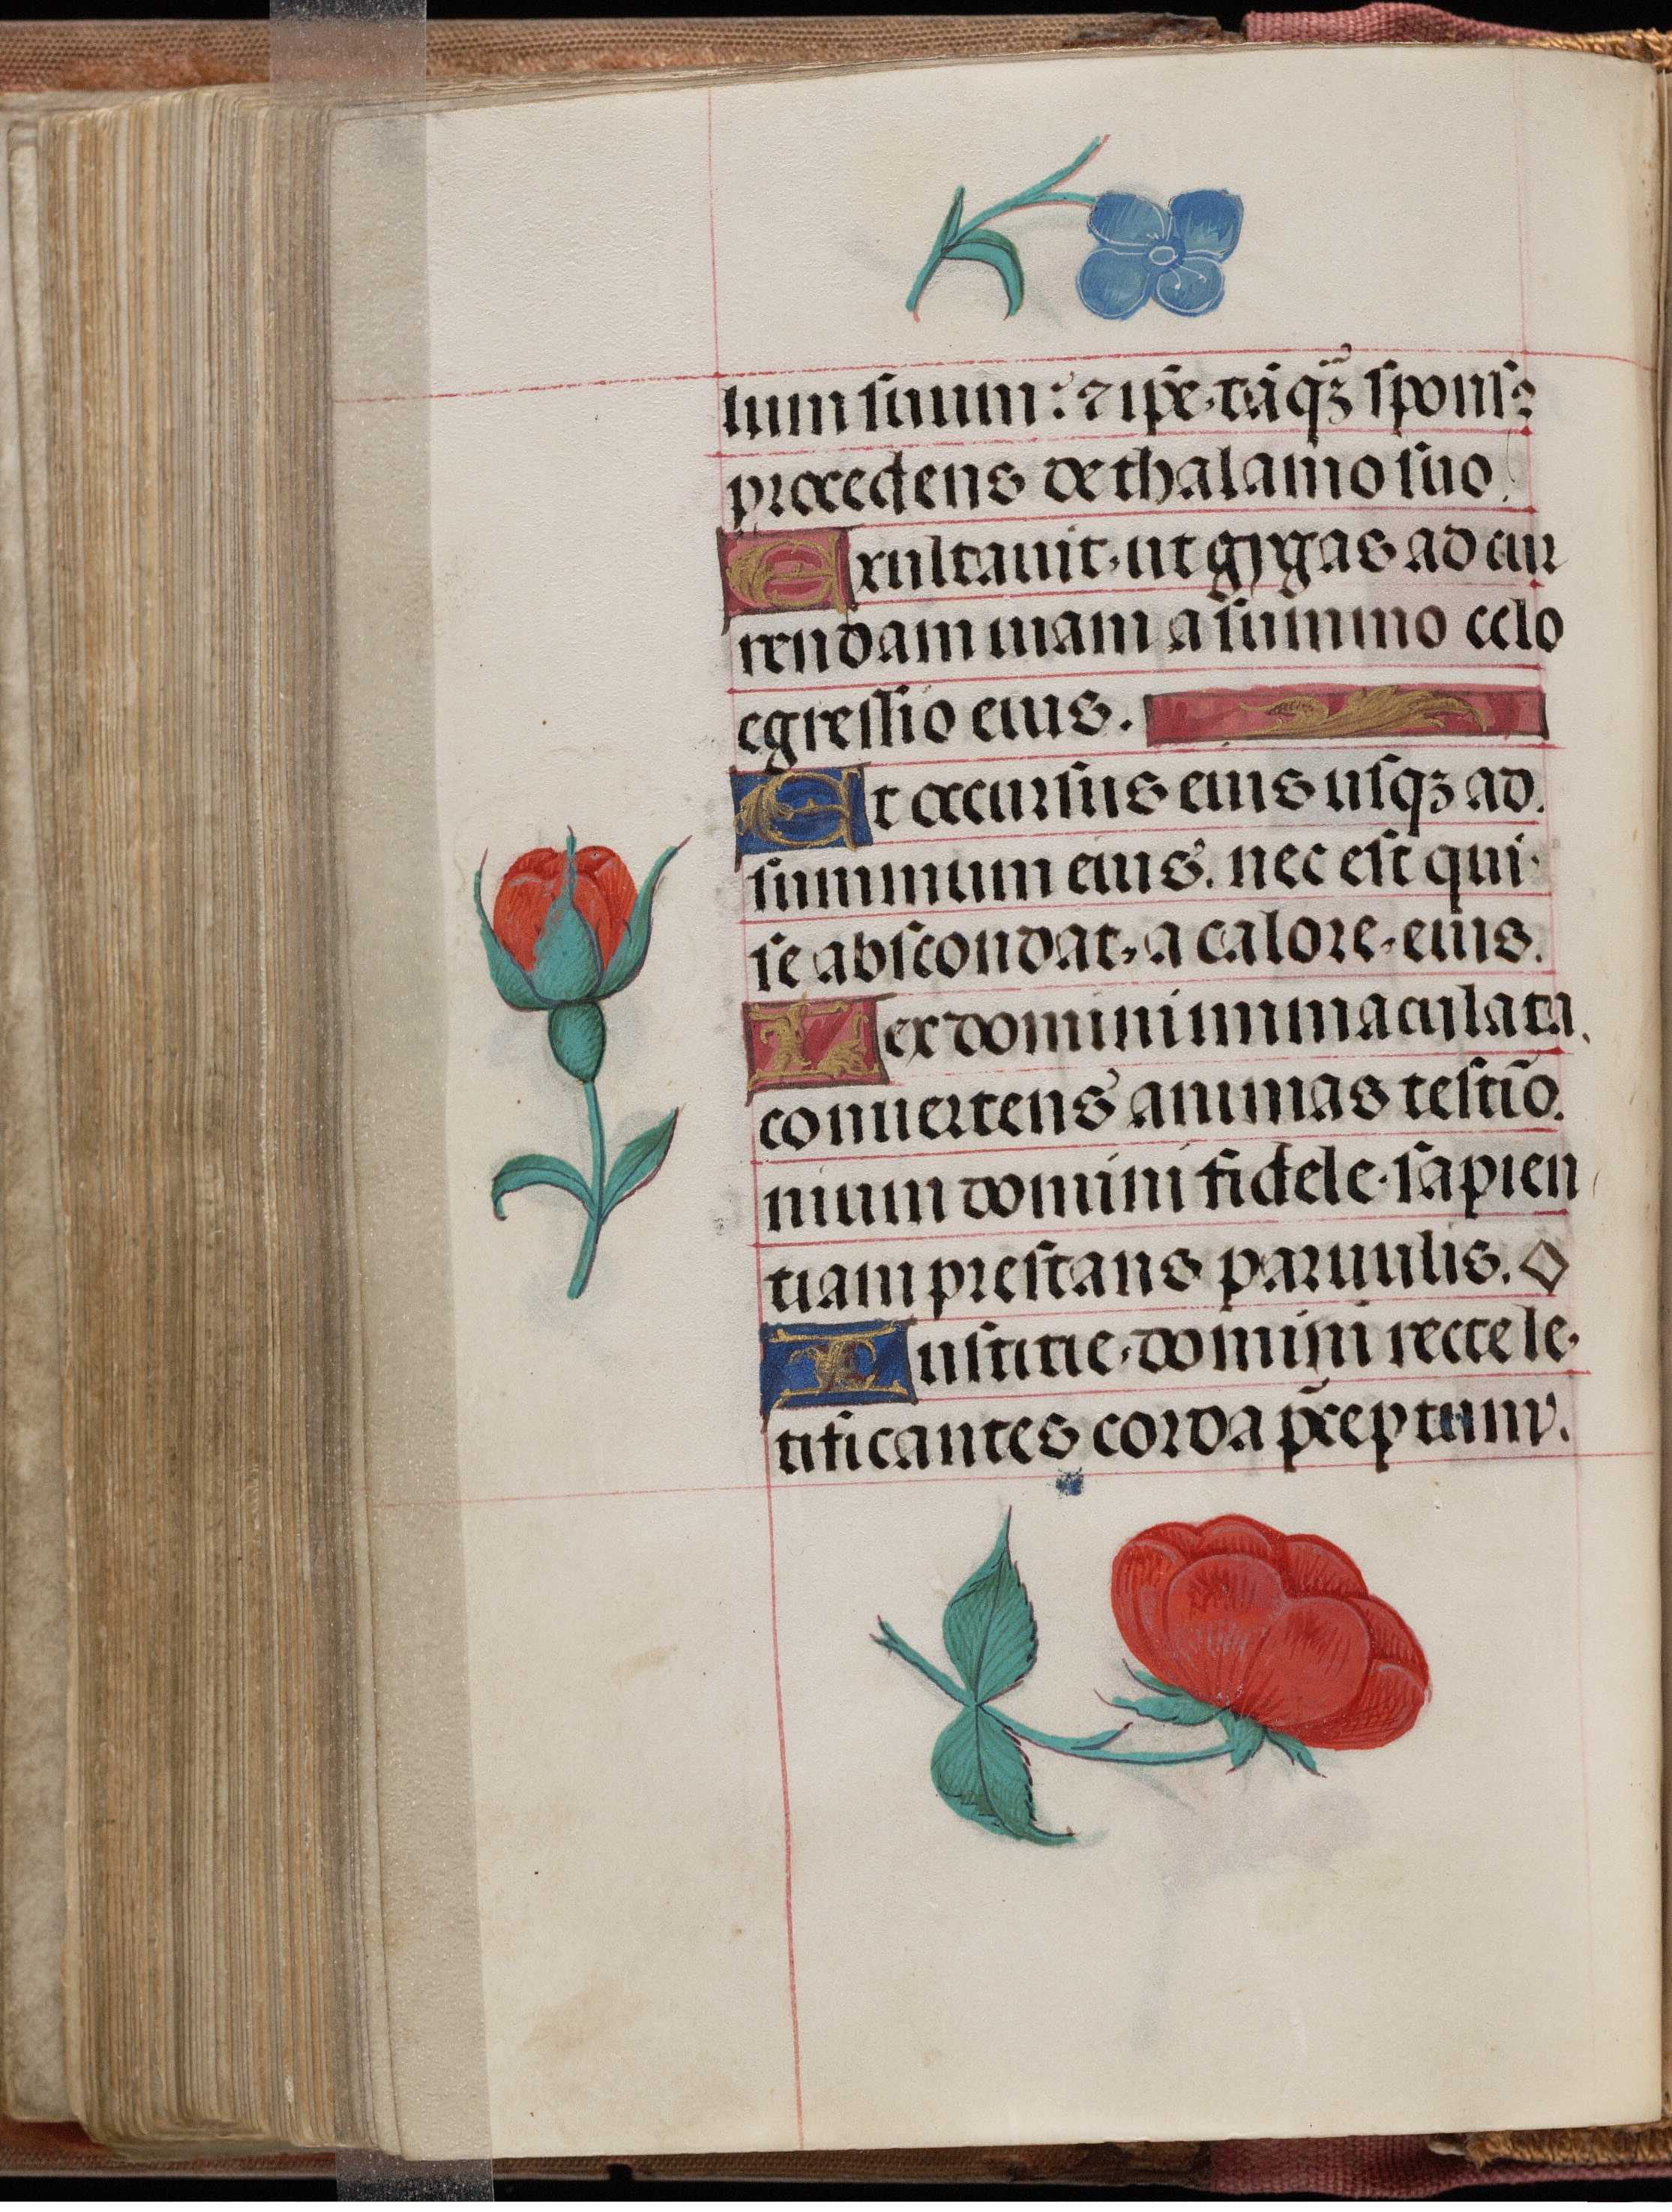 lum suum: ⁊ ip̄e tāqȝ sponsꝰ
procedens de thalamo suo.
Exultauit ut gygas ad cur
rendam uiam a summo celo
egressio eius.
Et occursus eius usqȝ ad
summum eius. nec est qui
se abscondat a calore eius.
Lex domini immaculata
conuertens animas testīo
nium domini fidele sapien
tiam prestans paruulis.
Iustitie domini recte le
tificantes corda p̄ceptum